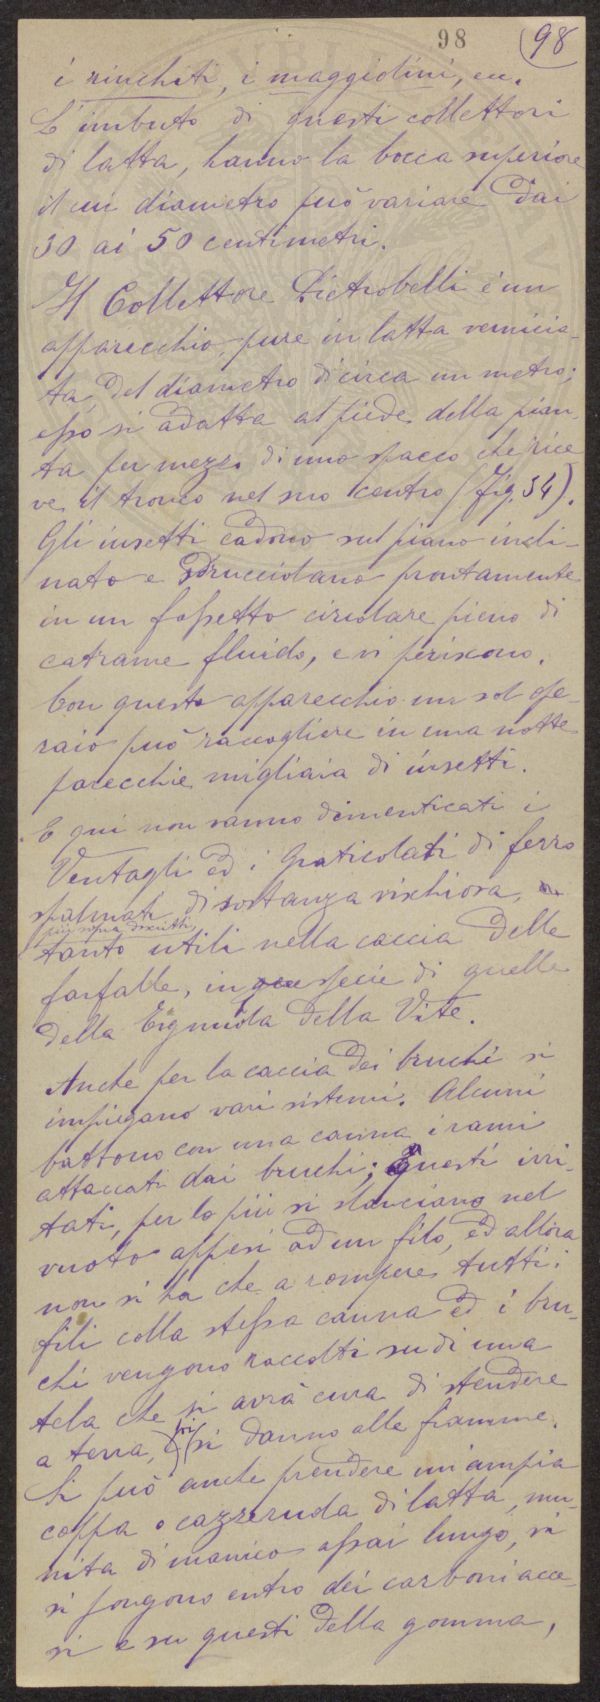 98
98
i rinchiti, i maggiolini, ecc.
L'imbuto di questi collettori
di latta, hanno la bocca superiore
il cui diametro può variare dai
30 ai 50 centimetri.
Il Collettore Pietrobelli è un
apparecchio, pure in latta vernicia-
ta del diametro di circa un metro;
esso si adatta al piede della pian-
ta per mezzo di uno spacco che rice
ve il tronco nel suo centro (fig. 34).
Gli insetti cadono sul piano incli-
nato e sdrucciolano prontamente
in un fossetto circolare pieno di
catrame fluido, e vi periscono.
Con questo apparecchio un sol ope-
raio può raccogliere in una notte
parecchie migliaia di insetti.
E qui non vanno dimenticati i
Ventagli ed i graticolati di ferro
spalmati di sostanza vischiosa,
più sopra descritti,
tanto utili nella caccia delle
farfalle, in specie di quelle
della Tignuola della Vite.
Anche per la caccia dei bruchi si
impiegano vari sistemi. Alcuni
battono con una canna i rami
attaccati dai bruchi; questi irri-
tati, per lo più si slanciano nel
vuoto appesi ad un filo, ed allora
non si ha che a rompere tutti i
fili colla stessa canna ed i bru-
chi vengono raccolti su di una
tela che si avrà cura di stendere
a terra, si danno alle fiamme.
Si può anche prendere un'ampia
coppa o cazzeruola di latta, mu-
nita di manico assai lungo, vi
si pongono entro dei carboni acce-
si e su questi della gomma,